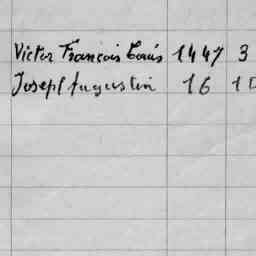 Victor François Louis 1447 3
Joseph Augustin 16 10